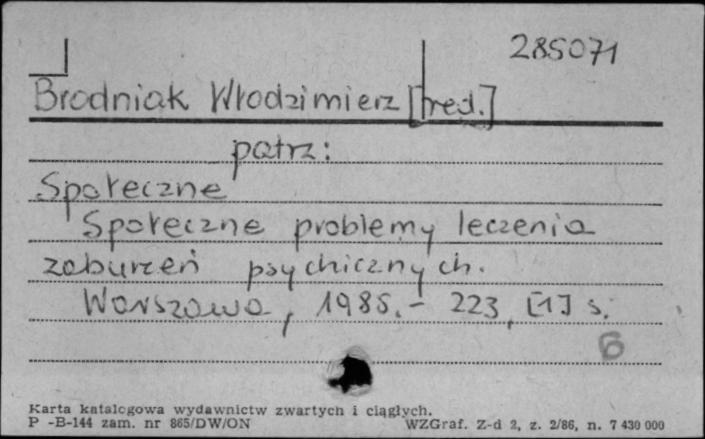 285071
Brodniak Włodzimierz [red.]
patrz:
Społeczne
Społeczne problemy leczenia
zaburzeń psychicznych.
Warszawa, 1985.- 223, [1] s.
B
Karta katalogowa wydawnictw zwartych i ciągłych.
P -B-144 zam. nr 865/DW/ON WZGraf. Z-d 2, z. 2/86, n. 7 430 000